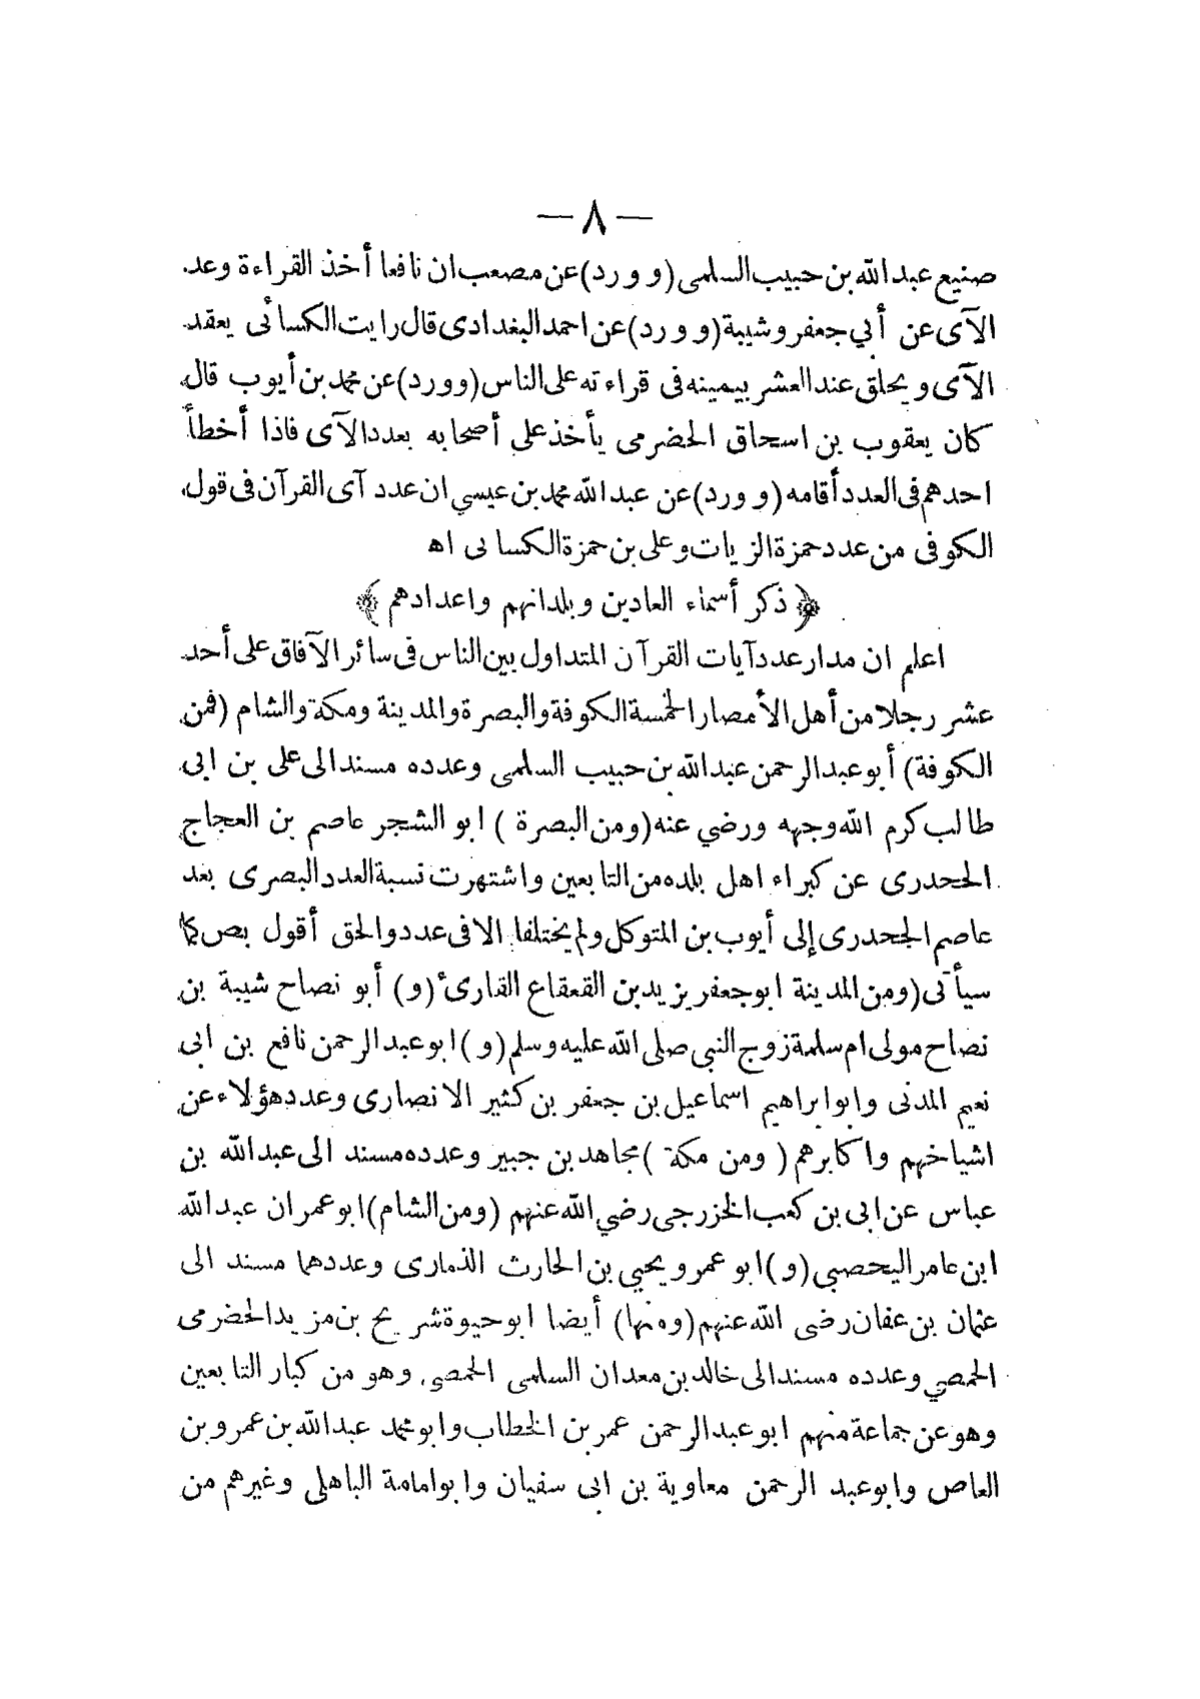 — ٨ —
صنيع عبد الله بن حبيب السلمى (و ورد) عن مصعب ان نافعا أخذ القراءة وعد
الآى عن أبي جعفر وشيبة (و ورد) عن احمد البغدادى قال رايت الكسائى يعقد
الآى ويحلق عند العشر بيمينه فى قراءته على الناس (وورد) عن محمد بن أيوب قال
كان يعقوب بن اسحاق الحضرمى يأخذ على أصحابه بعدد الآى فاذا أخطأ
احدهم فى العدد أقامه (و ورد) عن عبد الله محمد بن عيسي ان عدد آى القرآن فى قول
الكوفى من عدد حمزة الزيات وعلى بن حمزة الكسائى اه
﴿ ذكر أسماء العادين وبلدانهم واعدادهم ﴾
اعلم ان مدار عدد آيات القرآن المتداول بين الناس فى سائر الآفاق على أحد
عشر رجلا من أهل الأمصار الخمسة الكوفة والبصرة والمدينة ومكة والشام (فمن
الكوفة) أبو عبد الرحمن عبد الله بن حبيب السلمى وعدده مسند الى على بن ابى
طالب كرم الله وجهه ورضي عنه (ومن البصرة) ابو الشجر عاصم بن العجاج
الجحدرى عن كبراء اهل بلده من التابعين واشتهرت نسبة العدد البصرى بعد
عاصم الجحدرى إلى أيوب بن المتوكل ولم يختلفا الا فى عدد والحق أقول بص كما
سيأتى (ومن المدينة ابو جعفر يزيد بن القعقاع القارئ (و) أبو نصاح شيبة بن
نصاح مولى ام سلمة زوج النبى صلى الله عليه وسلم (و) ابو عبد الرحمن نافع بن ابى
نعيم المدنى وابو ابراهيم اسماعيل بن جعفر بن كثير الانصارى وعدد هؤلاء عن
اشياخهم واكابرهم (ومن مكة) مجاهد بن جبير وعدده مسند الى عبد الله بن
عباس عن ابى بن كعب الخزرجى رضي الله عنهم (ومن الشام) ابو عمران عبد الله
ابن عامر اليحصبي (و) ابو عمرو يحيي بن الحارث الذمارى وعددهما مسند الى
عثمان بن عفان رضى الله عنهم (ومنها) أيضا ابو حيوة شريح بن مزيد الحضرمى
الحمصي وعدده مسند الى خالد بن معدان السلمى الحمصى وهو من كبار التابعين
وهو عن جماعة منهم ابو عبد الرحمن عمر بن الخطاب وابو محمد عبد الله بن عمرو بن
العاص وابو عبد الرحمن معاوية بن ابى سفيان وابو امامة الباهلى وغيرهم من